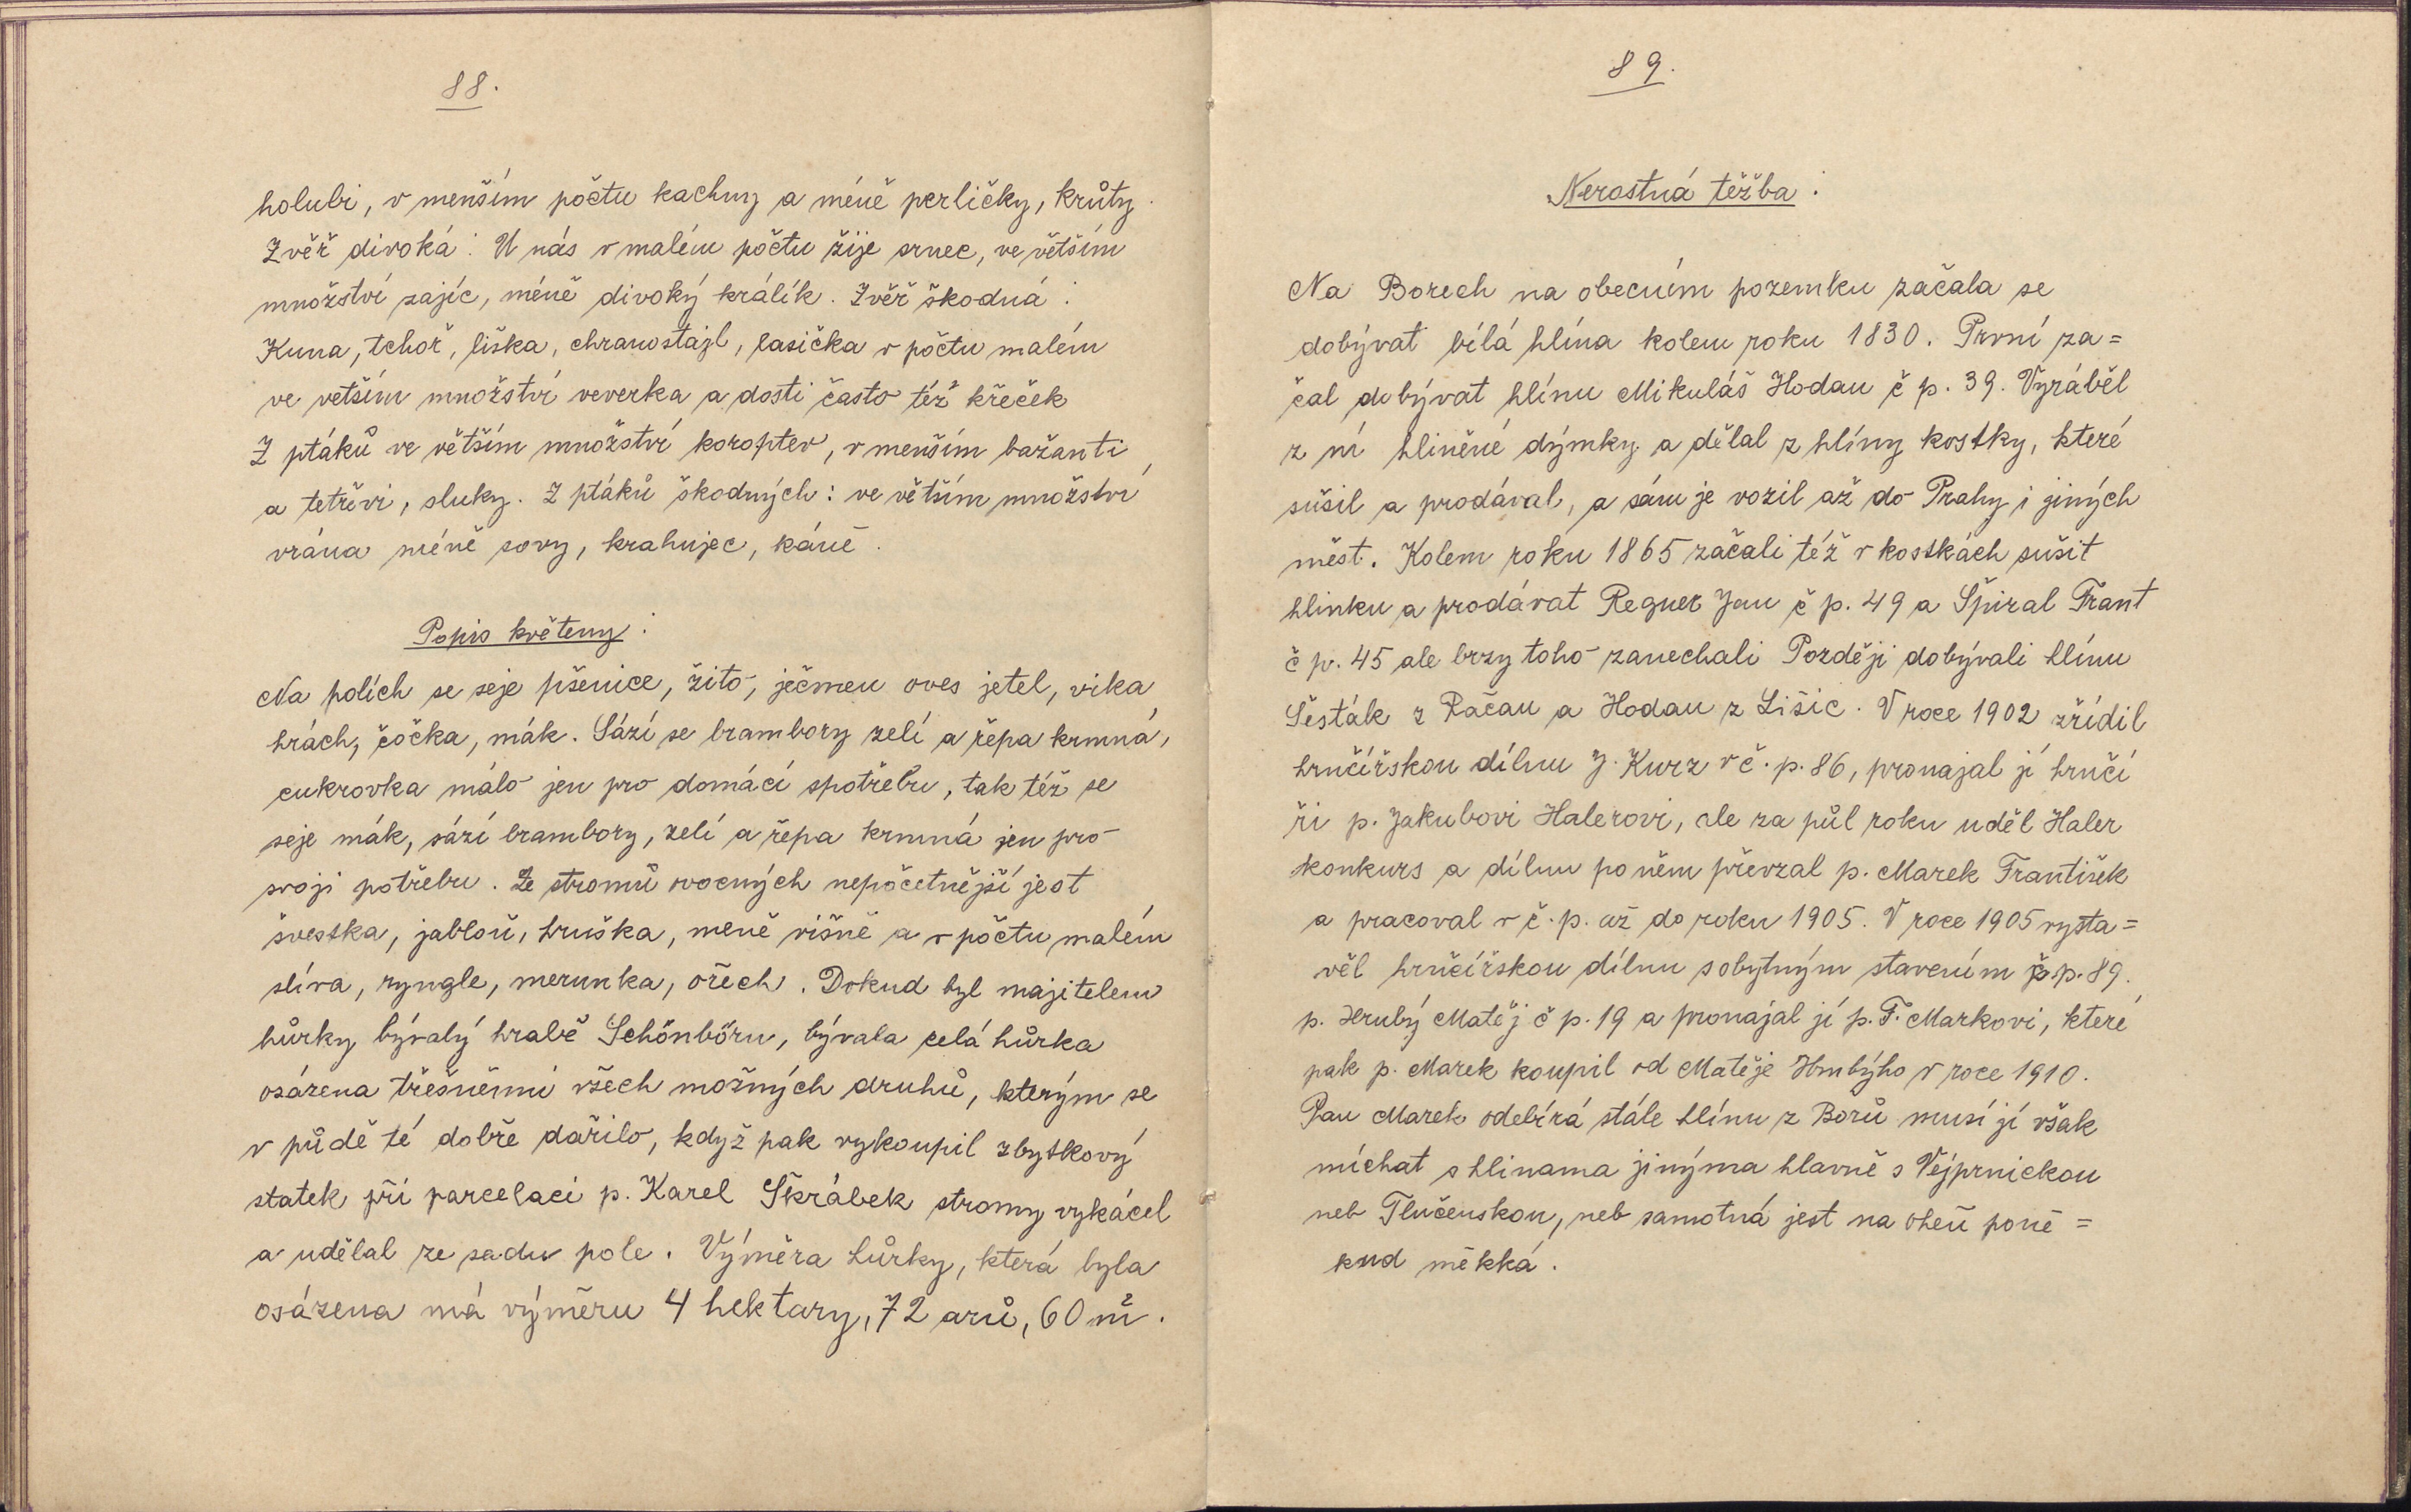 88.
holubi, v menším počtu kachny a méně perličky, krůty.
Zvěř divoká: U nás v malém počtu žije srnec, ve větším
množství zajíc, méně divoký králík. Zvěř škodná:
Kuna, tchoř, liška, chramostajl, lasička v počtu malém
ve vetším množství veverka a dosti často též křeček
Z ptáků ve větším množství koroptev, v menším bažanti,
a tetřevi, sluky. Z ptáků škodných: ve větším množství
vrána méně sovy, krahujec, káně.
Popis květeny:
Na polích se seje pšenice, žito, ječmen oves jetel, vika,
hrách, čočka, mák. Sází se brambory zelí a řepa krmná,
cukrovka málo jen pro domácí spotřebu, tak též se
seje mák, sází brambory, zelí a řepa krmná jen pro
svoji potřebu. Ze stromů ovocných nepočetnější jest
švestka, jabloň, hruška, meně višně a v počtu malém
slíva, ryngle, merunka, ořech. Dokud byl majitelem
hůrky bývalý hrabě Schönbörn, bývala celá hůrka
osázena třešněmi všech možných druhů, kterým se
v půdě té dobře dařilo, když pak vykoupil zbytkový
statek při parcelaci p. Karel Škrábek stromy vykácel
a udělal ze sadu pole. Výměra hůrky, která byla
osázena má výměru 4 hektary, 72 arů, 60 m².
89.
Nerostná těžba:
Na Borech na obecním pozemku začala se
dobývat bílá hlína kolem roku 1830. První za=
čal dobývat hlínu Mikuláš Hodan č p. 39. Vyráběl
z ní hliněné dýmky a dělal z hlíny kostky, které
sušil a prodával, a sám je vozil až do Prahy i jiných
měst. Kolem roku 1865 začali též v kostkách sušit
hlinku a prodávat Regner Jan č p. 49 a Špiral Frant
č p. 45 ale brzy toho zanechali Později dobývali hlínu
Šesták z Račan a Hodan z Lišic. V roce 1902 zřídil
hrnčířskou dílnu J. Kurz v č. p. 86, pronajal jí hrnčí
ři p. Jakubovi Halerovi, ale za půl roku uděl Haler
konkurs a dílnu po něm převzal p. Marek František
a pracoval v č. p. až do roku 1905. V roce 1905 vysta=
věl hrnčířskou dílnu s obytným stavením č. p. 89.
p. Hrubý Matěj č p. 19 a pronajal jí p. F. Markovi, které
pak p. Marek koupil od Matěje Hrubýho v roce 1910.
Pan Marek odebírá stále hlínu z Borů musí jí však
míchat s hlinama jinýma hlavně s Vejprnickou
neb Tlučenskou, neb samotná jest na oheň poně=
kud měkká.